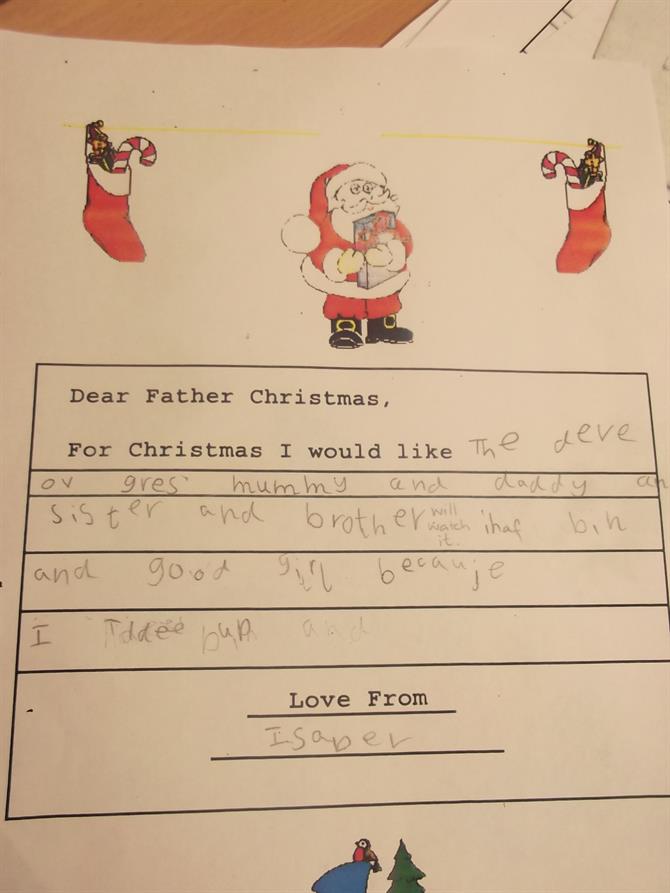 Dear Father Christmas,
For Christmas I would like The deve
ov gres mummy and daddy an
sister and brother will watch it. ihaf bin
and good girl becauje
I pup and
Love From
Isaber